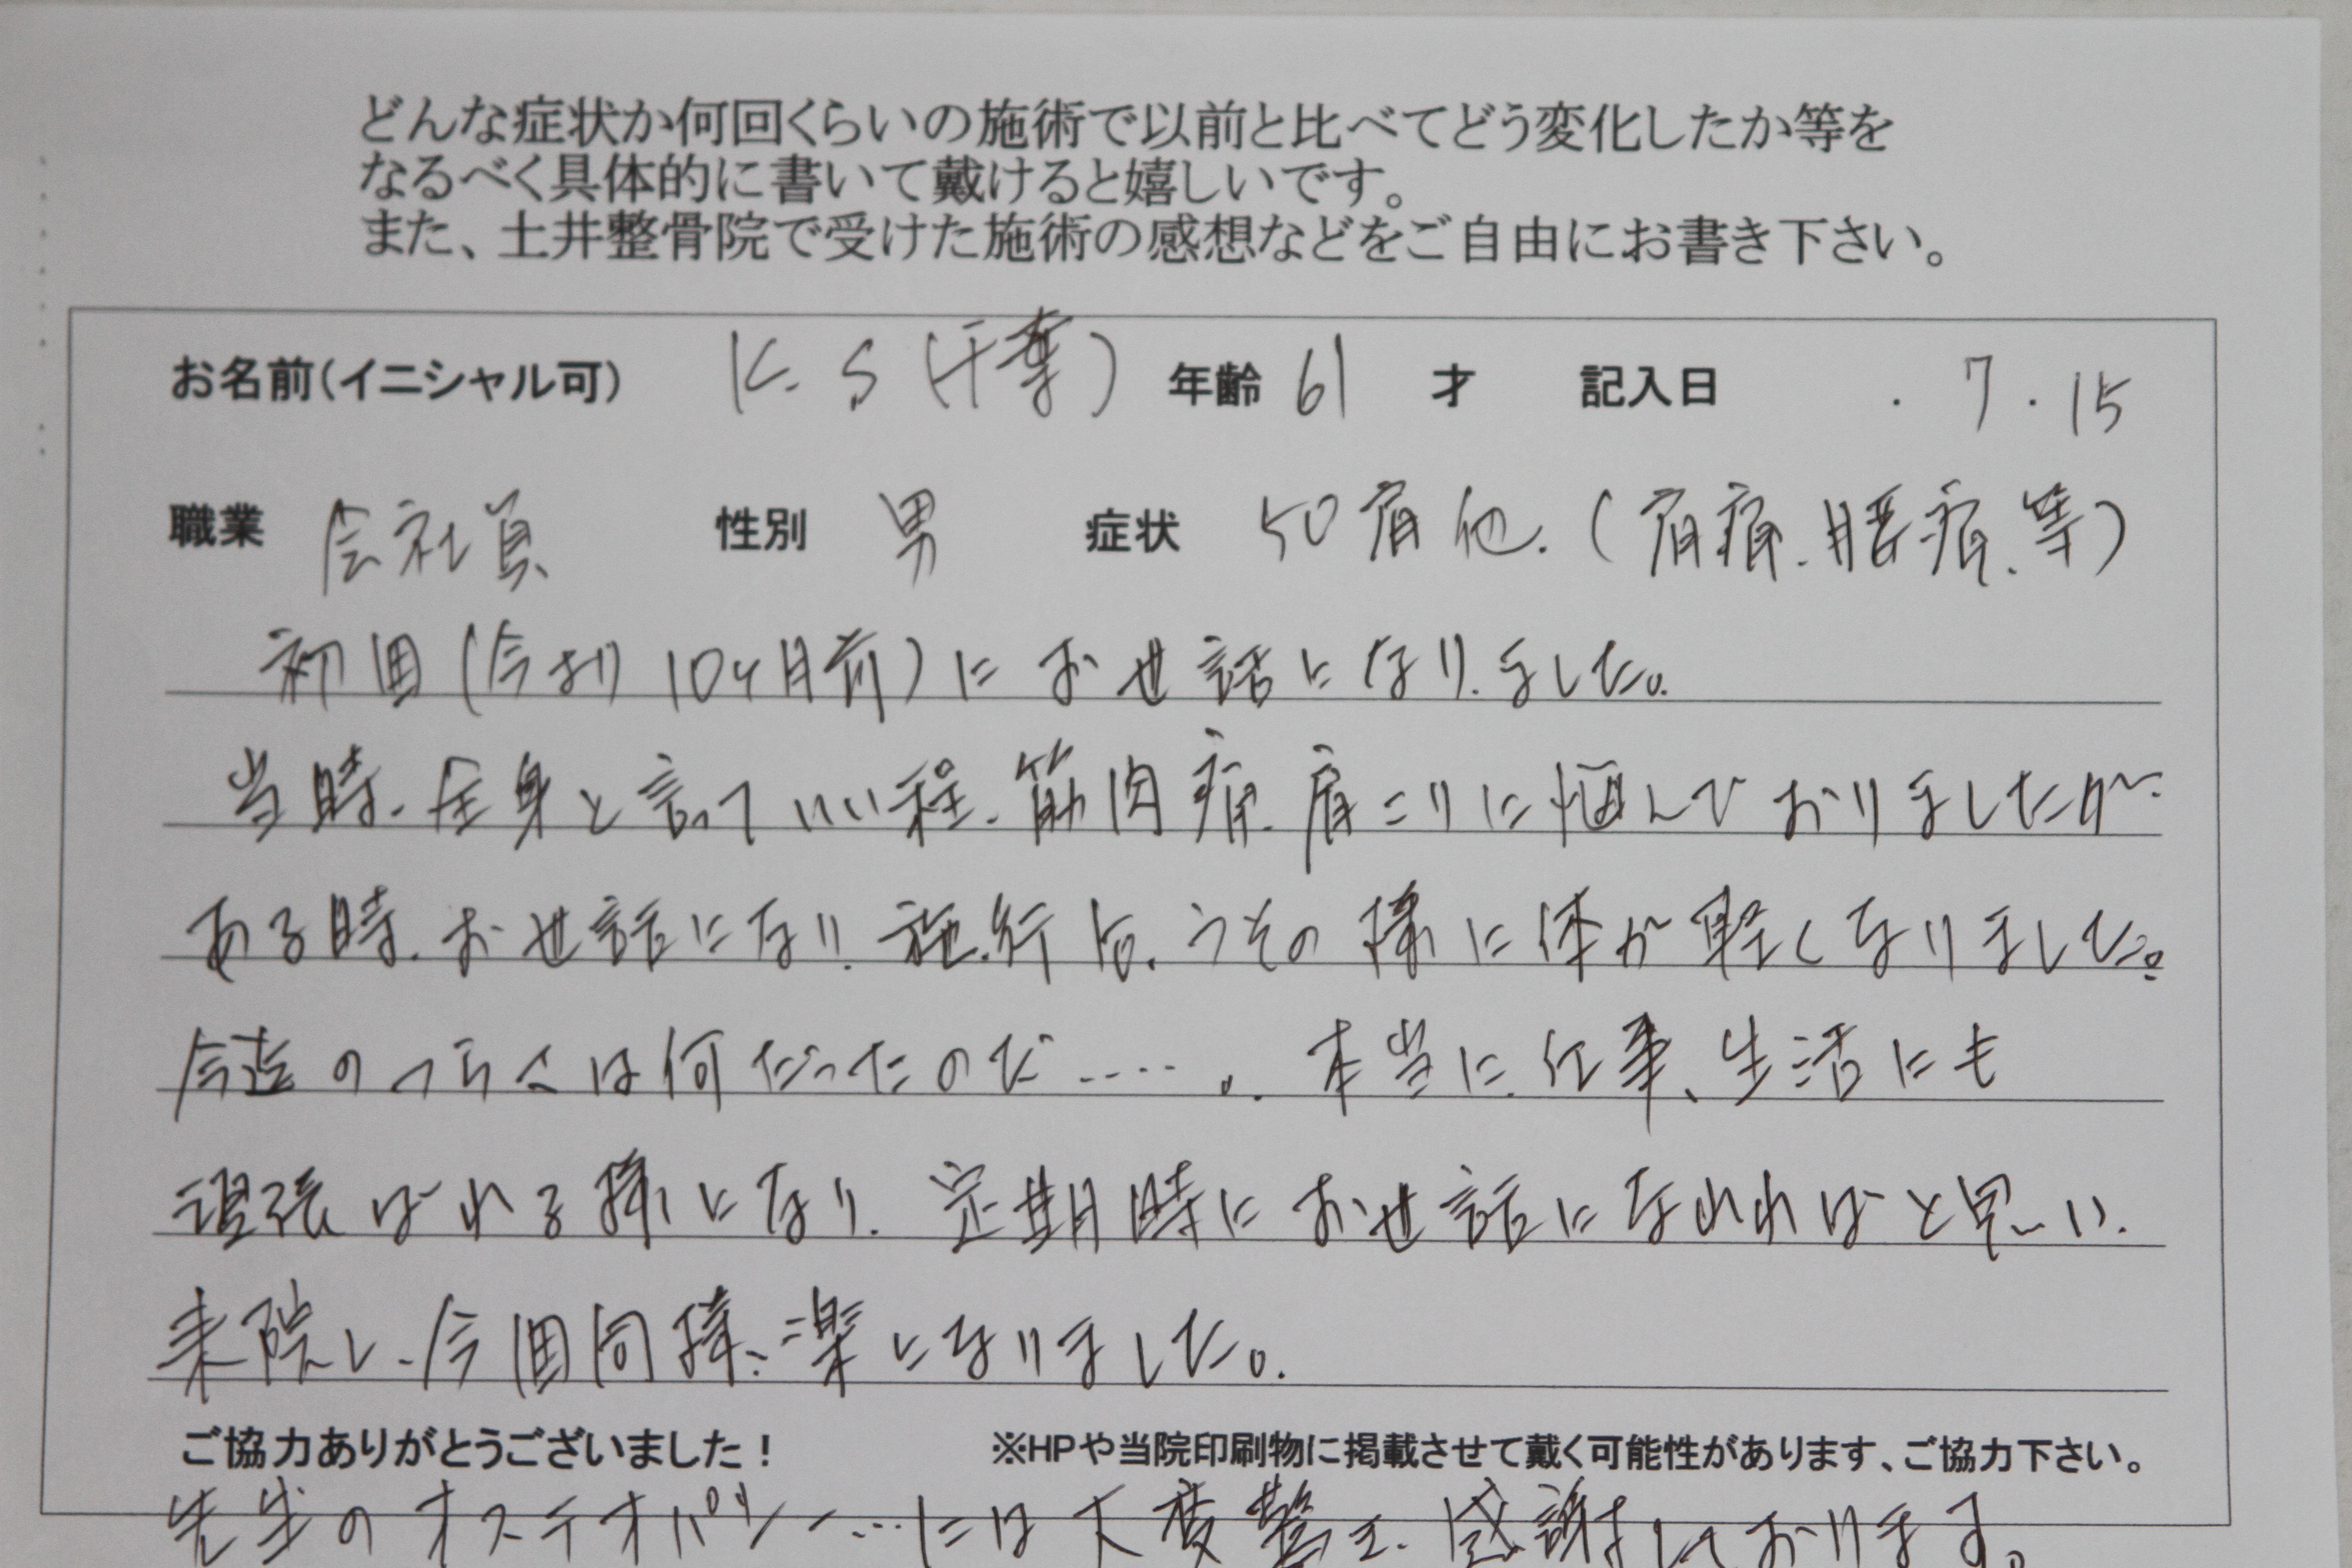 どんな症状か何回くらいの施術で以前と比べてどう変化したか等を
なるべく具体的に書いて戴けると嬉しいです。
また、土井整骨院で受けた施術の感想などをご自由にお書き下さい。
お名前(イニシャル可) K.S(千葉) 年齢 61 才 記入日 .7.15
職業 会社員 性別 男 症状 50肩他.(肩痛.腰痛.等)
初回(今より10ヶ月前)にお世話になりました。
当時.全身と言っていい程.筋肉痛.肩こりに悩んでおりましたが.
ある時.お世話になり.施行后.うその様に体が軽くなりました。
今迄のつらさは何だったのだ……。本当に.仕事、生活にも
頑張ばれる様になり.定期時にお世話になれればと思い.
来院し.今回同様、楽になりました。
ご協力ありがとうございました! ※HPや当院印刷物に掲載させて戴く可能性があります、ご協力下さい。
先生のオステオパシー…には大変驚き.感謝しております。